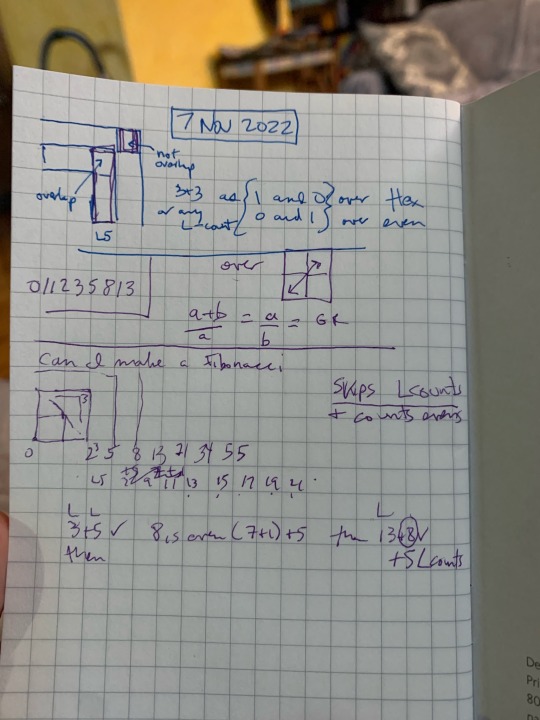 7 Nov 2022
not
overlap
overlap
L5
3x3 as { 1 and 0 } over Hex
or any L-count { 0 and 1 } over even
over
011235813
a+b/a = a/b = GR
Can I make a Fibonacci
Skips Lcounts
+ counts evens
3
0 2 3 5 8 13 21 34 55
L5 9 11 13 15 17 19 21
L L L
3+5 ✓ 8 is even (7+1)+5 then 13+8 ✓
then +5 Lcounts
De
Pri
80